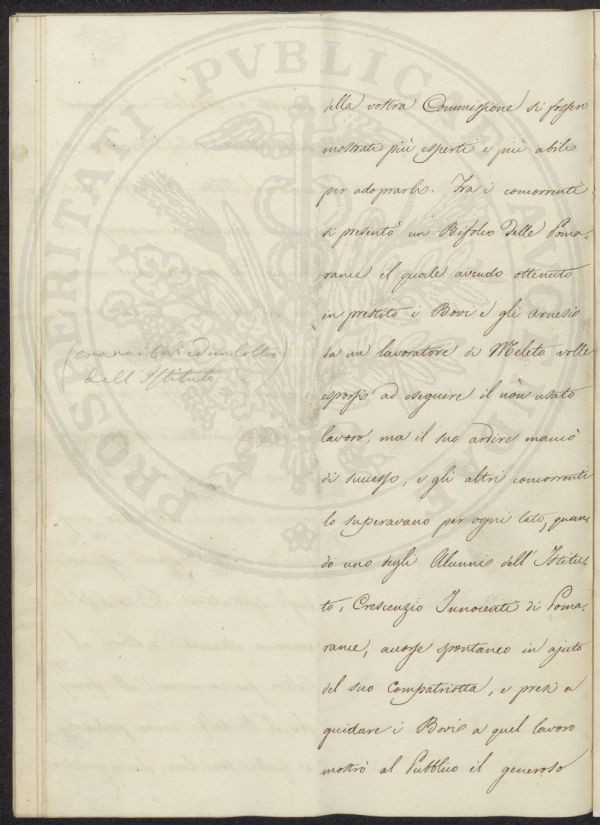 della vostra Commissione si fossero
mostrati più esperti e più abili
per adoprarli. Tra i concorrenti
si presentò un Bifolco delle Poma=
rance il quale avendo ottenuto
in prestito i Bovi e gli arnesi
da un lavoratore di Meleto volle
esporsi ad eseguire il non usato
lavoro, ma il suo ardire mancò
di successo, e gli altri concorrenti
lo superavano per ogni lato, quan=
do uno degli Alunni dell'Istitu=
to, Crescenzio Innocenti di Poma=
rance, accorse spontaneo in ajuto
del suo Compatriotta, e presi a
guidare i Bovi a quel lavoro
mostrò al Pubblico il generoso
(erano i bovi ed un coltro)
dell'Istituto
PROSPERITATI PUBLICAE